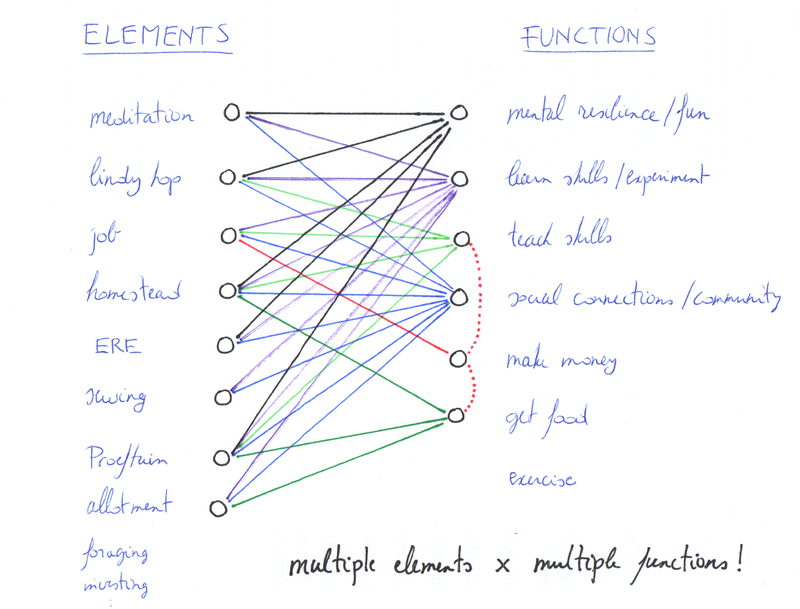 ELEMENTS FUNCTIONS
meditation mental resilience/fun
lindy hop learn skills/experiment
job teach skills
homestead social connections/community
ERE make money
sewing get food
Proeftuin exercise
allotment
foraging
investing
multiple elements x multiple functions!